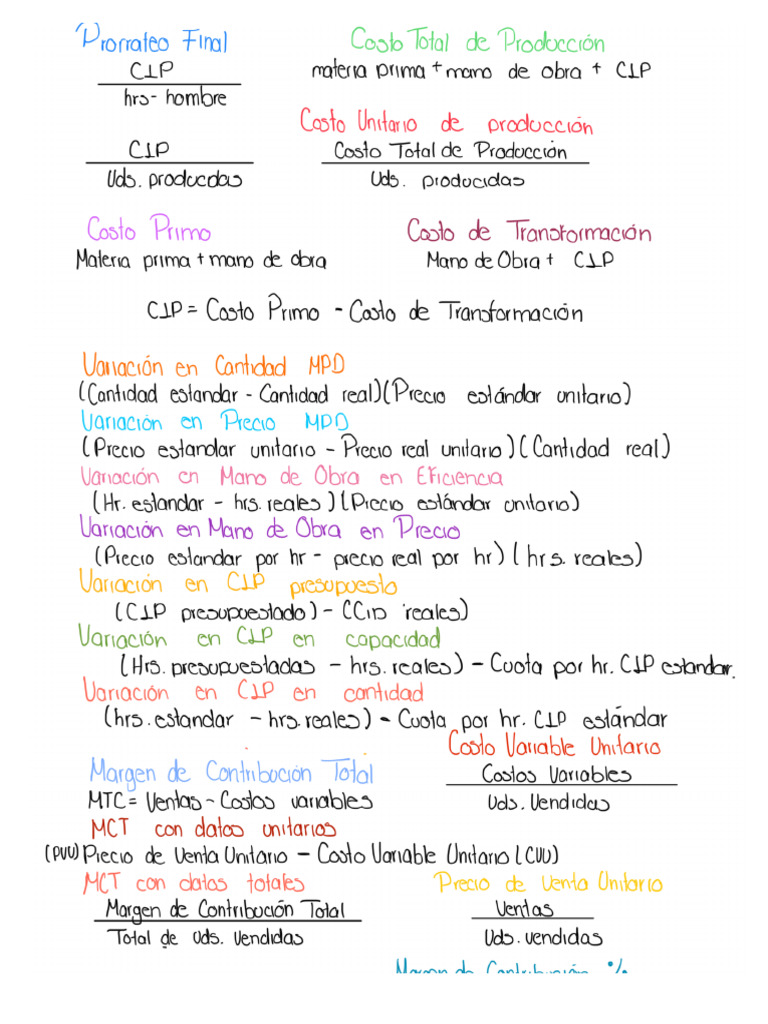 Prorrateo Final
CIP
hrs-hombre
CIP
Uds. producdas
Costo Total de Producción
materia prima + mano de obra + CIP
Costo Unitario de producción
Costo Total de Producción
Uds. producidas
Costo Primo
Materia prima + mano de obra
Costo de Transformación
Mano de Obra + CIP
CIP = Costo Primo - Costo de Transformación
Variación en Cantidad MPD
(Cantidad estandar - Cantidad real)(Precio estándar unitario)
Variación en Precio MPD
(Precio estandar unitario - Precio real unitario)(Cantidad real)
Variación en Mano de Obra en Eficiencia
(Hr. estandar - hrs. reales)(Precio estándar unitario)
Variación en Mano de Obra en Precio
(Precio estandar por hr - precio real por hr)(hrs. reales)
Variación en CIP presupuesto
(CIP presupuestado) - (CID reales)
Variación en CIP en capacidad
(Hrs. presupuestadas - hrs. reales) - Cuota por hr. CIP estandar.
Variación en CIP en cantidad
(hrs. estandar - hrs. reales) - Cuota por hr. CIP estándar
Margen de Contribución Total
MTC = Ventas - Costos variables
Costo Variable Unitario
Costos Variables
Uds. Vendidas
MCT con datos unitarios
(PVU) Precio de Venta Unitario - Costo Variable Unitario (CVU)
MCT con datos totales
Margen de Contribución Total
Total de Uds. Vendidas
Precio de Venta Unitario
Ventas
Uds. vendidas
Margen de Contribución %